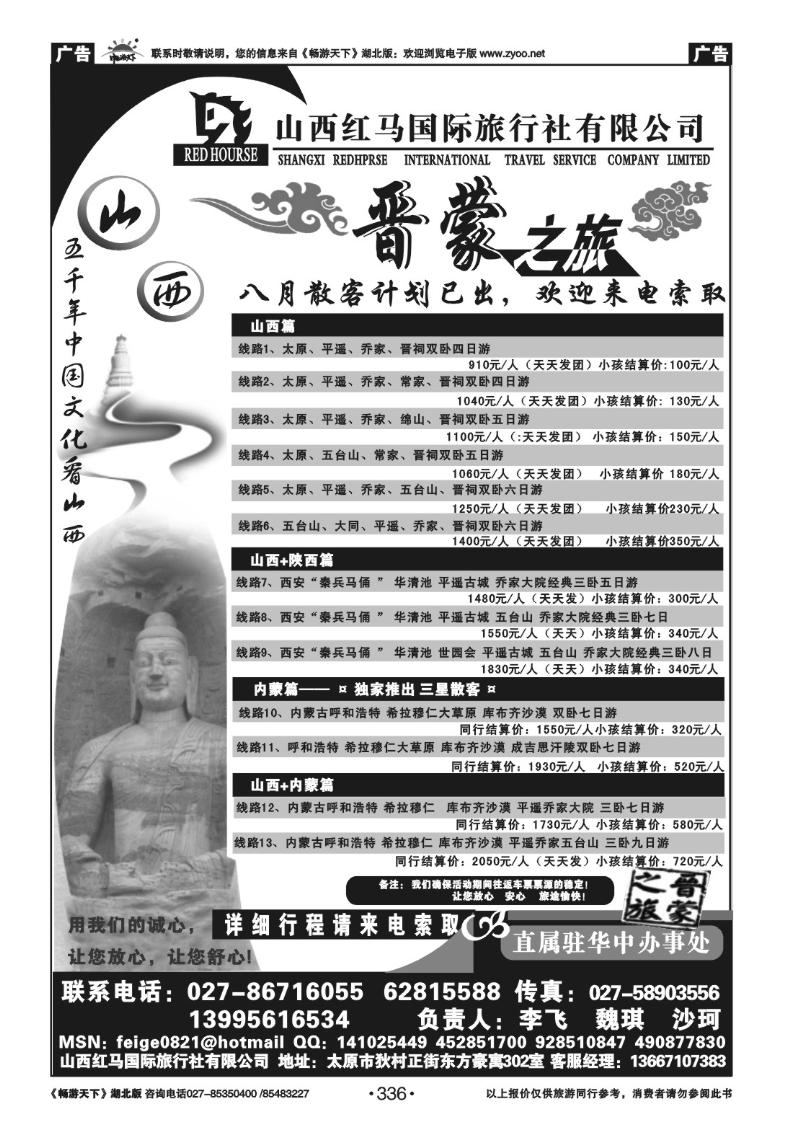 广告
畅游天下
联系时敬请说明，您的信息来自《畅游天下》湖北版：欢迎浏览电子版 www.zyoo.net
广告
RED HOURSE
山西红马国际旅行社有限公司
SHANGXI REDHPRSE INTERNATIONAL TRAVEL SERVICE COMPANY LIMITED
山西
五千年中国文化看山西
晋蒙之旅
八月散客计划已出，欢迎来电索取
山西篇
线路1、太原、平遥、乔家、晋祠双卧四日游
910元/人（天天发团）小孩结算价:100元/人
线路2、太原、平遥、乔家、常家、晋祠双卧四日游
1040元/人（天天发团）小孩结算价: 130元/人
线路3、太原、平遥、乔家、绵山、晋祠双卧五日游
1100元/人（:天天发团） 小孩结算价: 150元/人
线路4、太原、五台山、常家、晋祠双卧五日游
1060元/人（天天发团） 小孩结算价 180元/人
线路5、太原、平遥、乔家、五台山、晋祠双卧六日游
1250元/人（天天发团） 小孩结算价230元/人
线路6、五台山、大同、平遥、乔家、晋祠双卧六日游
1400元/人（天天发团） 小孩结算价350元/人
山西+陕西篇
线路7、西安“秦兵马俑 ” 华清池 平遥古城 乔家大院经典三卧五日游
1480元/人（天天发）小孩结算价: 300元/人
线路8、西安“秦兵马俑 ” 华清池 平遥古城 五台山 乔家大院经典三卧七日
1550元/人（天天）小孩结算价: 340元/人
线路9、西安“秦兵马俑 ” 华清池 世园会 平遥古城 五台山 乔家大院经典三卧八日
1830元/人（天天）小孩结算价: 340元/人
内蒙篇—— ¤ 独家推出 三星散客 ¤
线路10、内蒙古呼和浩特 希拉穆仁大草原 库布齐沙漠 双卧七日游
同行结算价: 1550元/人小孩结算价: 320元/人
线路11、呼和浩特 希拉穆仁大草原 库布齐沙漠 成吉思汗陵双卧七日游
同行结算价: 1930元/人 小孩结算价: 520元/人
山西+内蒙篇
线路12、内蒙古呼和浩特 希拉穆仁 库布齐沙漠 平遥乔家大院 三卧七日游
同行结算价: 1730元/人 小孩结算价: 580元/人
线路13、内蒙古呼和浩特 希拉穆仁 库布齐沙漠 平遥乔家五台山 三卧九日游
同行结算价: 2050元/人（天天发）小孩结算价: 720元/人
备注: 我们确保活动期间往返车票票源的稳定!
让您放心 安心 旅途愉快!
晋蒙之旅
用我们的诚心，
让您放心，让您舒心!
详细行程请来电索取
直属驻华中办事处
联系电话: 027-86716055 62815588 传真: 027-58903556
13995616534 负责人: 李飞 魏琪 沙珂
MSN: feige0821@hotmail QQ: 141025449 452851700 928510847 490877830
山西红马国际旅行社有限公司 地址: 太原市狄村正街东方豪寓302室 客服经理: 13667107383
《畅游天下》湖北版 咨询电话027-85350400 /85483227
·336·
以上报价仅供旅游同行参考，消费者请勿参阅此书